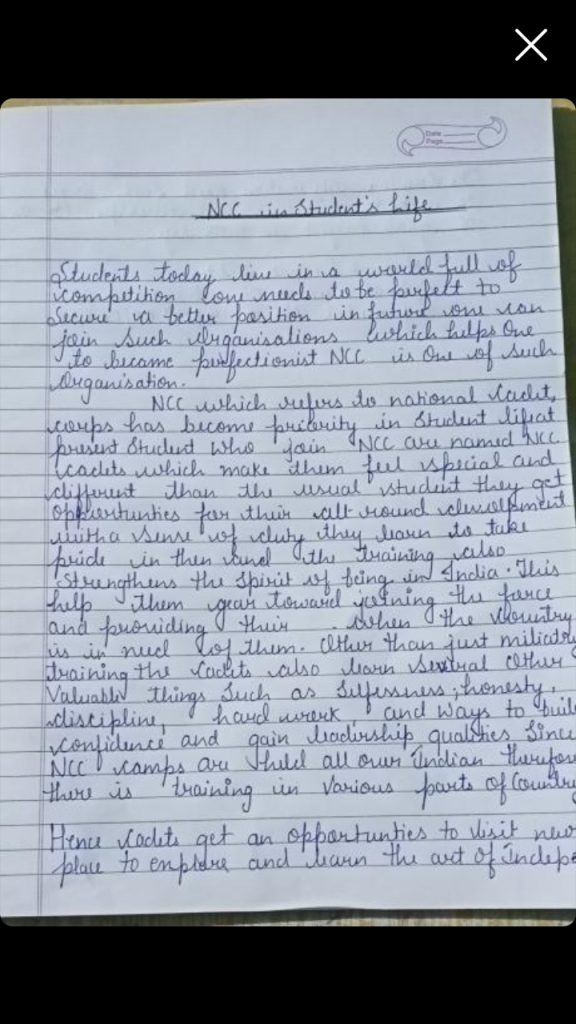 Date
Page
NCC in Student's Life
Students today live in a world full of
competition one needs to be perfect to
Secure a better position in future one can
join such organisations which helps One
to became perfectionist NCC is One of such
Organisation.
NCC which refers to national Cadet,
corps has become priority in Student life at
present Student who join NCC are named NCC
Cadets which make them feel special and
different than the usual student they get
opportunties for their all round
with a sense of duty they learn to take
pride in then and the training also
Strengthens the Spirit of being in India. This
help them gear toward joining the farce
and providing their when the Country
is in need of them. Other than just
training the Cadets also learn Several Other
Valuable things Such as honesty,
discipline, hard work, and Ways to
confidence and gain leadership qualities Since
NCC camps are held all over Indian
there is training in Various parts of
Hence Cadets get an opportunties to visit new
place to explore and learn the art of